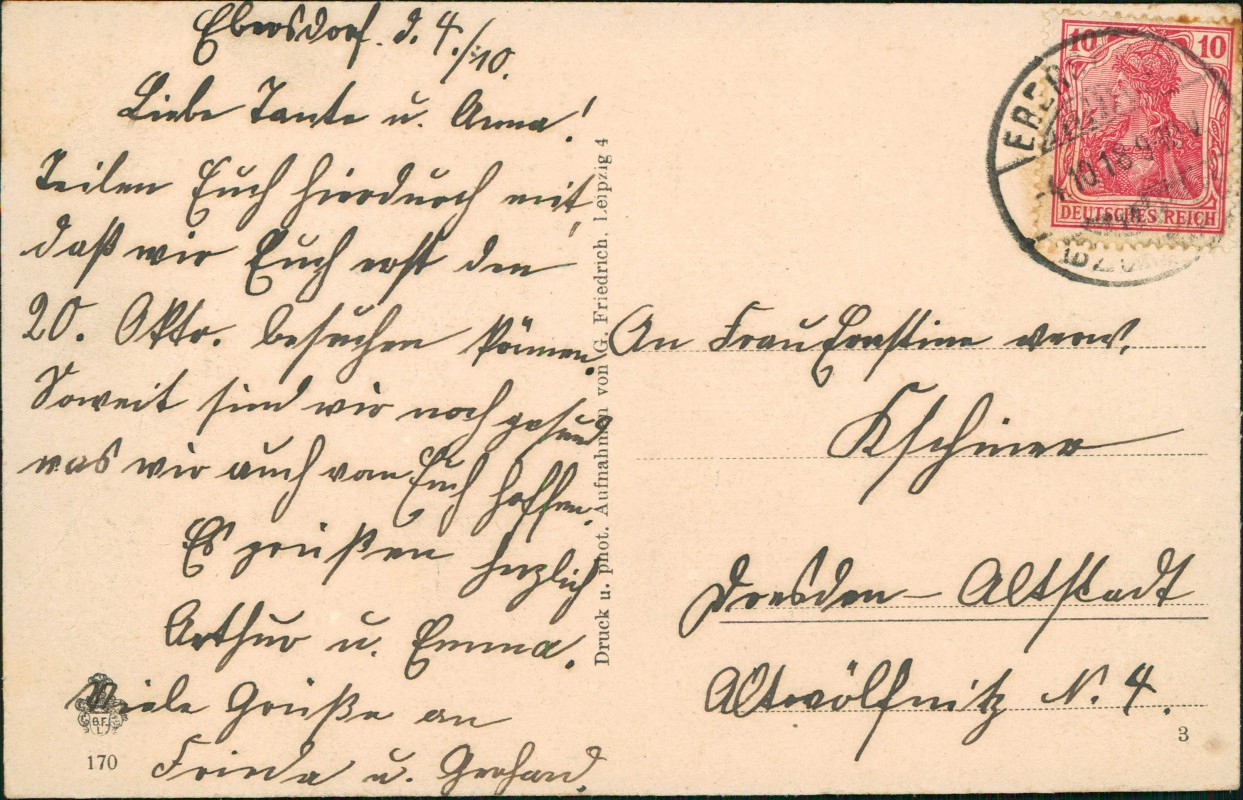 Ebersdorf. d. 4./10.
Liebe Tante u. Anna!
Teilen Euch hierdurch mit,
daß wir Euch erst den
20. Oktr. besuchen können.
Soweit sind wir noch gesund
was wir auch von Euch hoffen.
Es grüßen herzlich
Arthur u. Emma.
Viele Grüße an
Frieda u. Gerhard.
B.F.
L.
170
Druck u. phot. Aufnahmen von G. Friedrich, Leipzig 4
10 10
DEUTSCHES REICH
4.10.18 9-10 V
An Frau Ernstine verw.
Kschiner
Dresden – Altstadt
Altwölfnitz N. 4.
3